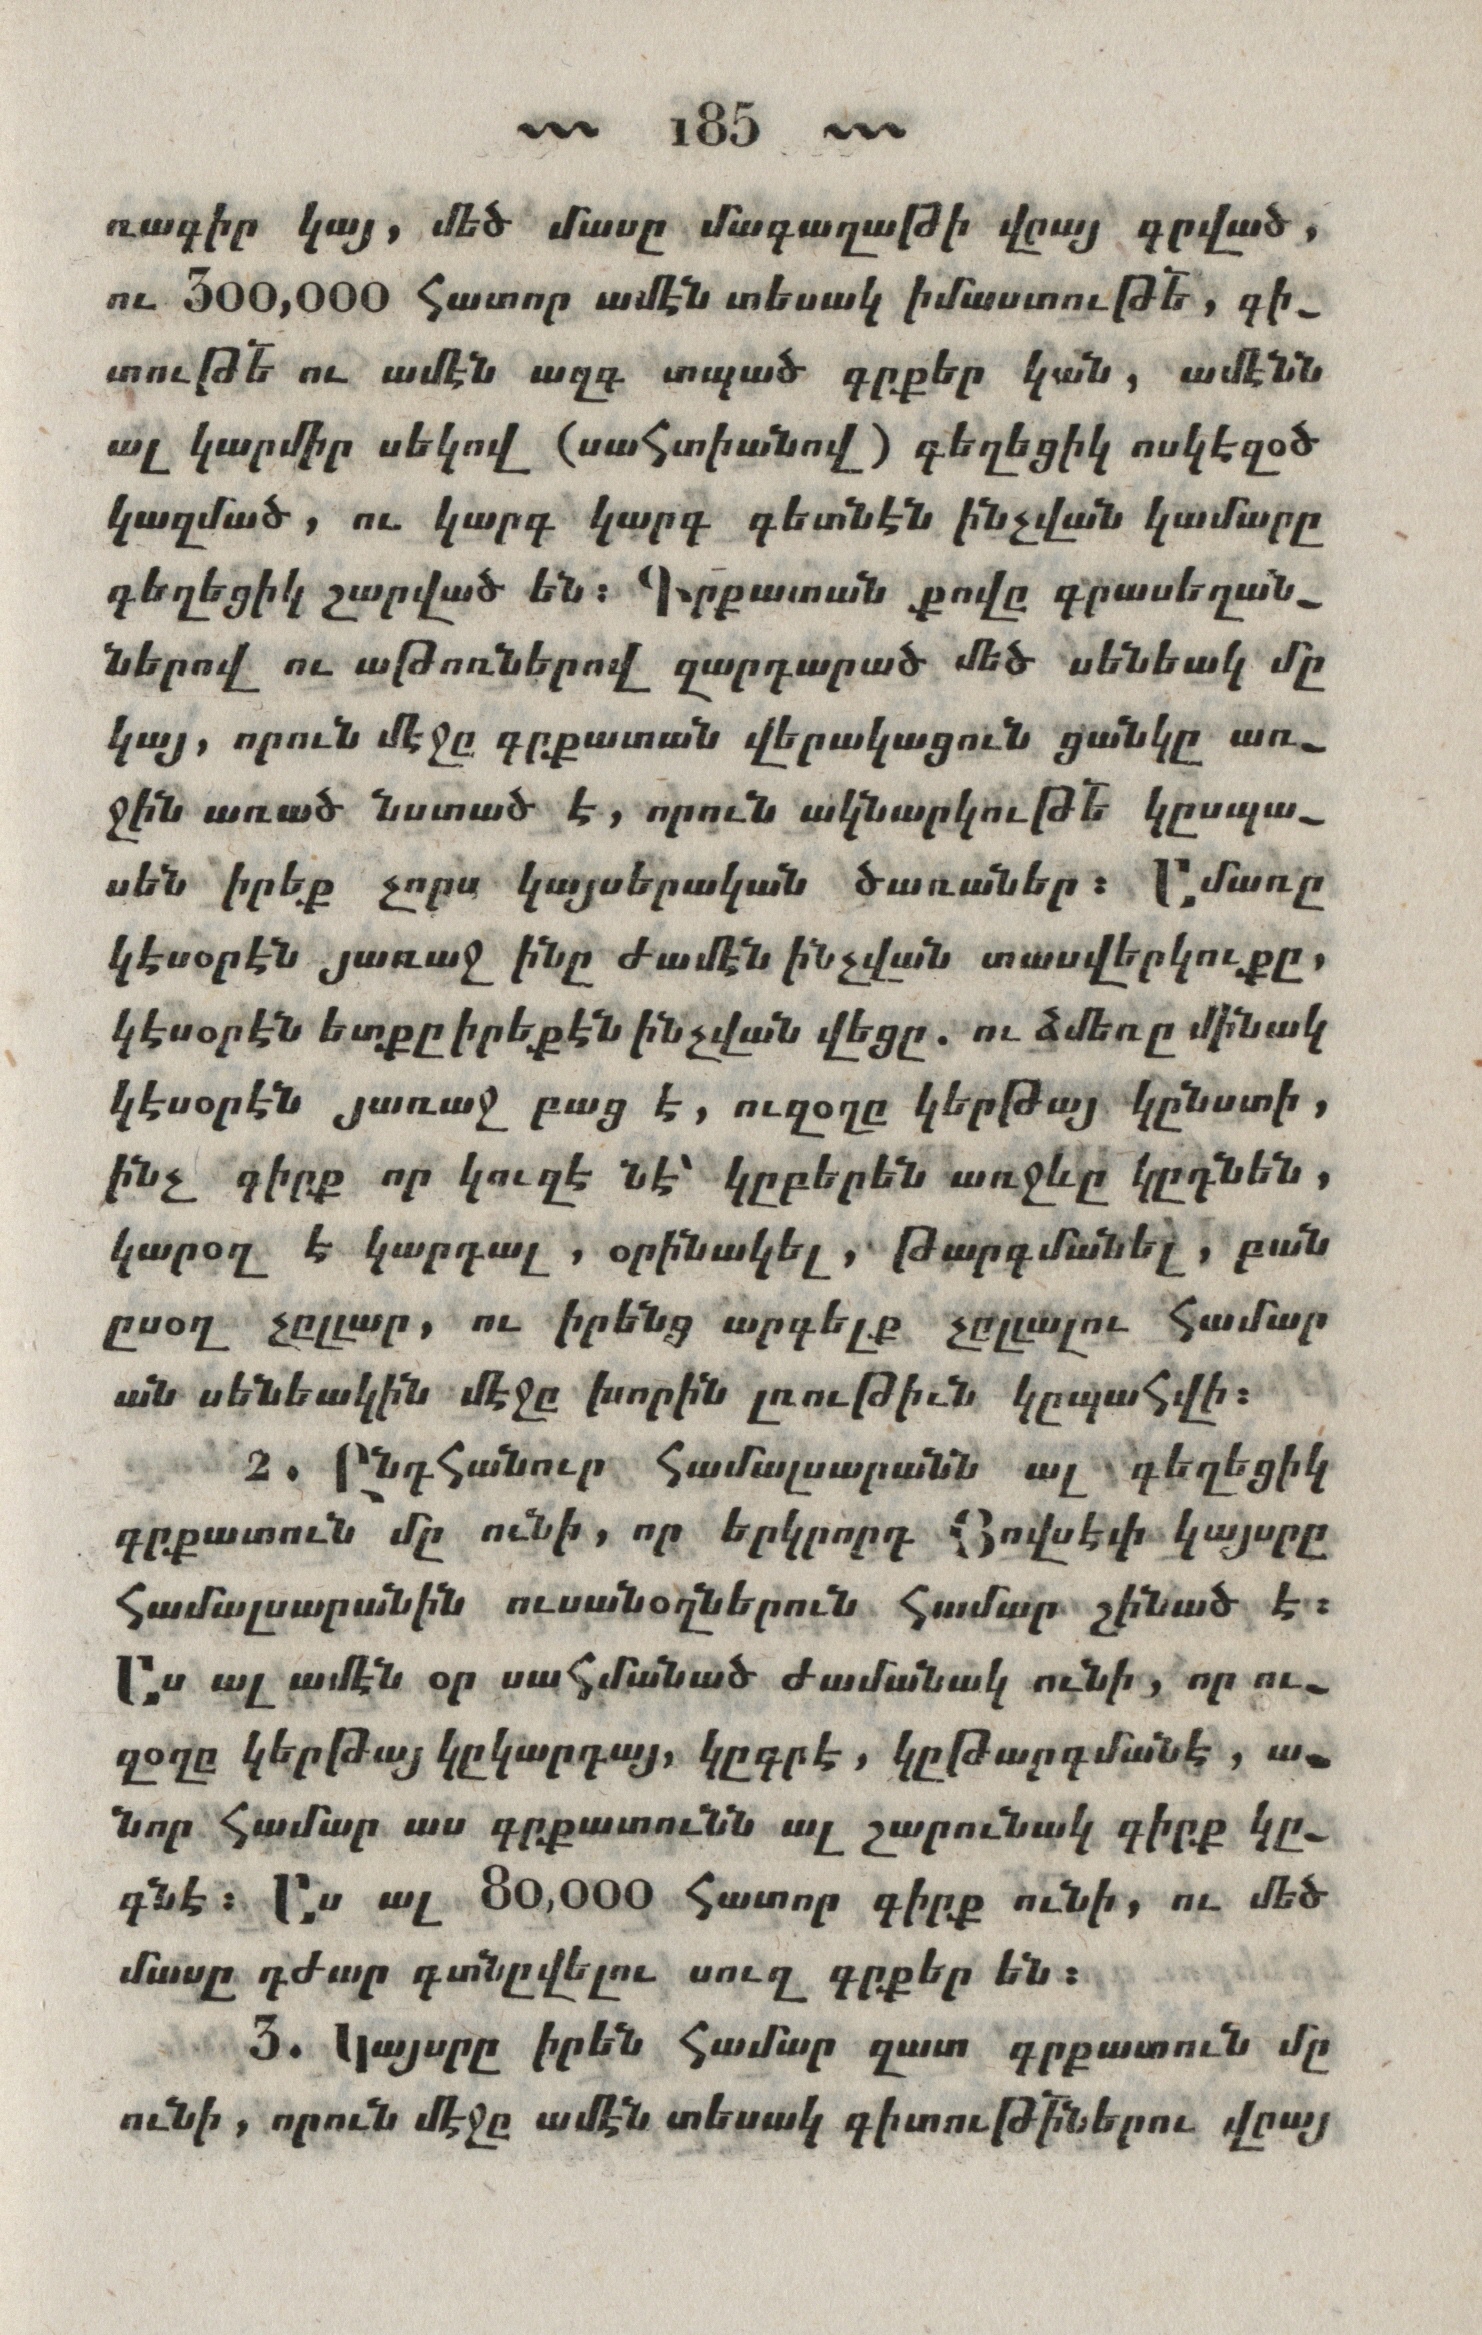 185
ռագիր կայ, մեծ մասը մագաղաթի վրայ գրված,
ու 300,000 հատոր ամէն տեսակ իմաստութե՟, գի֊
տութե՟ ու ամէն ազգ տպած գրքեր կան, ամէնն
ալ կարմիր սեկով (սահտիանով) գեղեցիկ ոսկէզօծ
կազմած, ու կարգ կարգ գետնէն ինչվան կամարը
գեղեցիկ շարված են։ Գրքատան քովը գրասեղան֊
ներով ու աթոռներով զարդարած մեծ սենեակ մը
կայ, որուն մէջը գրքատան վերակացուն ցանկը առ֊
ջին առած նստած է, որուն ակնարկութե՟ կըսպա֊
սեն իրեք չորս կայսերական ծառաներ։ Ամառը
կէսօրէն յառաջ ինը ժամէն ինչվան տասվերկուքը,
կէսօրէն ետքը իրեքէն ինչվան վեցը. ու ձմեռը մինակ
կէսօրէն յառաջ բաց է, ուզօղը կերթայ կընստի,
ինչ գիրք որ կուզէ նէ՝ կըբերեն առջևը կըդնեն,
կարօղ է կարդալ, օրինակել, թարգմանել, բան
ըսօղ չըլլար, ու իրենց արգելք չըլլալու համար
ան սենեակին մէջը խորին լռութիւն կըպահվի։
2. Ընդհանուր համալսարանն ալ գեղեցիկ
գրքատուն մը ունի, որ երկրորդ Յովսէփ կայսրը
համալսարանին ուսանօղներուն համար շինած է։
Աս ալ ամէն օր սահմանած ժամանակ ունի, որ ու֊
զօղը կերթայ կըկարդայ, կըգրէ, կըթարգմանէ, ա֊
նոր համար աս գրքատունն ալ շարունակ գիրք կը֊
գնէ։ Աս ալ 80,000 հատոր գիրք ունի, ու մեծ
մասը դժար գտնըվելու սուղ գրքեր են։
3. Կայսրը իրեն համար զատ գրքատուն մը
ունի, որուն մէջը ամէն տեսակ գիտութի՟ներու վրայ